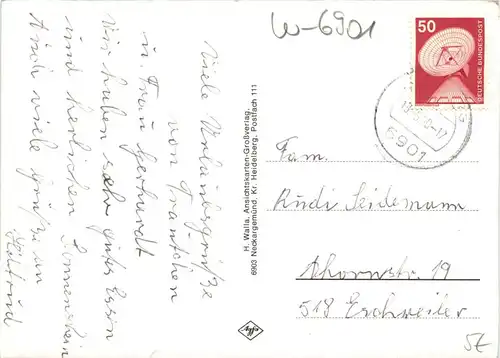 W-6901
Viele Urlaubsgrüße
von Trautchen
u. Frau Gerhardt
Wir haben sehr gutes Essen
und herrlichen Sonnenschein
Auch viele Grüße an
H. Walla, Ansichtskarten-Großverlag,
6903 Neckargemünd, Kr. Heidelberg, Postfach 111
50
DEUTSCHE BUNDESPOST
6901
Fam.
Rudi Seidemann
Ahornstr. 19
518 Eschweiler